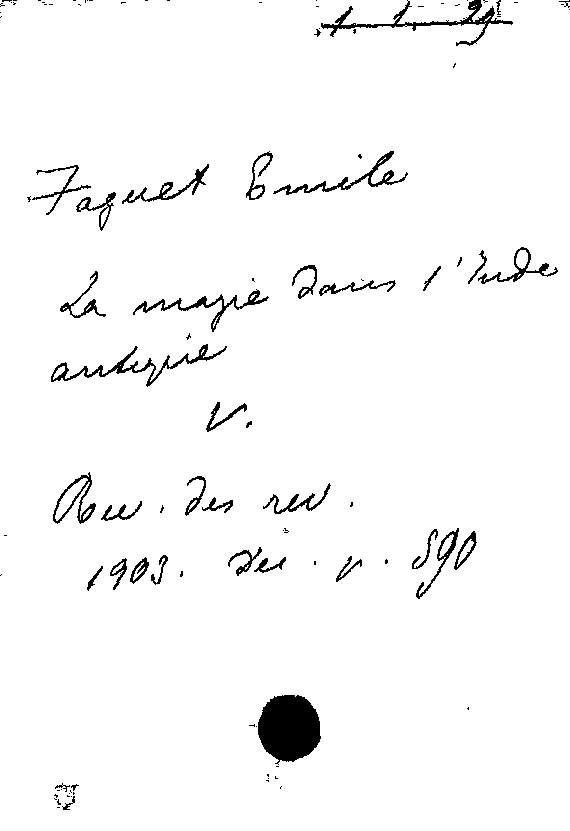 1. 1. 29
Faguet Emile
La magie dans l'Inde
antique
V.
Rev. des rev.
1903. Déc. p. 590